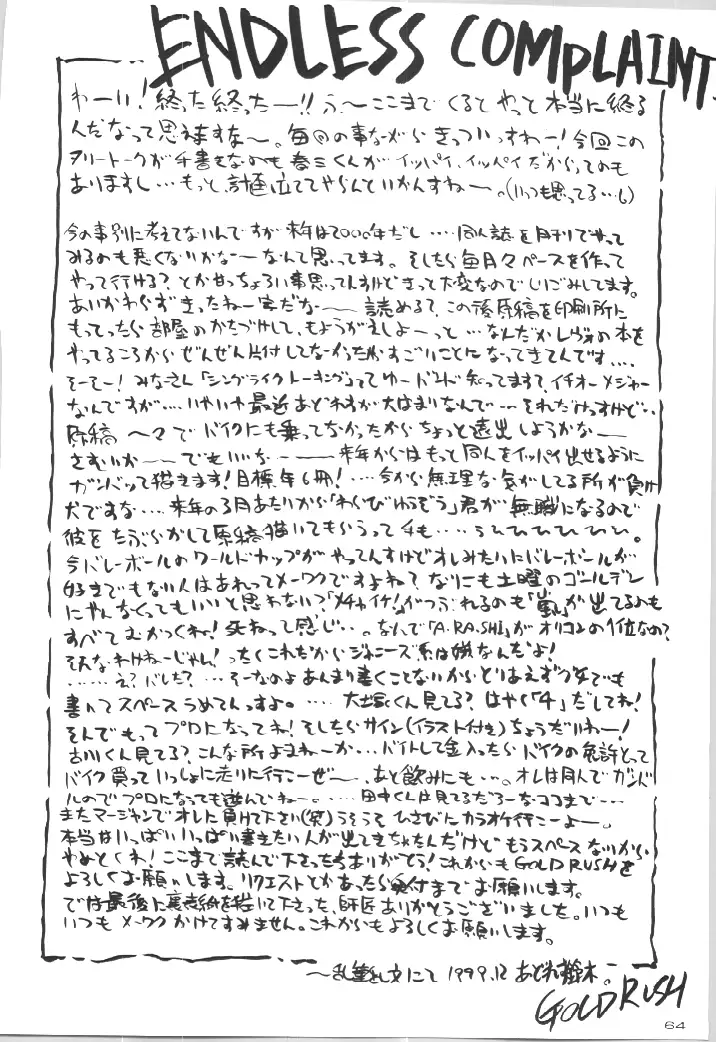 ENDLESS COMPLAINT
わーい!終った終ったー!!う、〜ここまでくるとやっと本当に終る
んだなって思いますな〜。毎回の事ながらきっついっすわー!今回この
フリートークが手書きなのも春三くんがイッパイ、イッパイだからってのも
ありますし…もっと計画立ててやらんといかんすねー。(いつも思ってる…し)
今の事別に考えてないんですが来年は2000年だし‥‥同人誌を月刊でやって
みるのも悪くないかなーなんて思ってます。そしたら毎月々ペースを作って
やって行ける?とか甘っちょろい事思ってんすけどきって大変なので
あいかわらずきったねー字だなー 読める?この後原稿を印刷所に
もってったら部屋のかたづけして、もようがえしよーっと…なんだか の本を
やってるころからぜんぜん片付してなかったからすごいことになってきてんです‥‥
そーそー!みなさん「シングライクトーキング」ってゆーバンド知ってます?イチオーメジャー
なんですが‥‥いやいや最近あどれすが大はまりなんで…それだけっすけど‥
原稿 〜々でバイクにも乗ってなかったからちょっと遠出しようかなー
さむいかーーでもいいなーー来年からはもっと同人をイッパイ出せるように
ガンバって描きます!目標年6冊!‥‥今から無理な気がしてる所が負け
犬ですな‥‥来年の3月あたりから「わらびゆうぞう」君が無職になるので
彼をたぶらかして原稿描いてもらうって手も‥‥うひひひひひひ。
今バレーボールのワールドカップがやってんすけどオレみたいにバレーボールが
好きでもない人はあれってメーワクですよね?なりにも土曜のゴールデン
にやんなくってもいいと思わない?「メチャイケ!」がつぶれるのも「嵐」が出てるのも
すべてむかつくね!死ねって感じ‥。なんで「A.RA.SHI」がオリコンの1位なの?
そんなわけねーじゃん!ったくこれだからジャニーズ系は嫌なんだよ!
‥‥え?バレた?…そーなのよあんまり書くことないからとりあえず でも
書いてスペースうめてんっすよ。‥‥大塚くん見てる?はやく「4」だしてね!
そんでもってプロになってね!そしたらサイン(イラスト付き)ちょうだいねー!
古川くん見てる?こんな所よまねーか…バイトして金入ったらバイクの免許とって
バイク買っていっしょに走りに行こーぜー、あと飲みにも…。オレは同人でガンバ
ルのでプロになっても遊んでねー。‥‥田中くんは見てるだろーなココまで…
またマージャンでオレに負けて下さい(笑)うそうそひさびにカラオケ行こーよー。
本当はいっぱいいっぱい書きたい人が出てきちゃたんだけどもうスペースないから
やめとくね!ここまで読んで下さった方ありがとう!これからもGOLD RUSHを
よろしくお願いします。リクエストとかあったら受付までお願いします。
では最後に裏表紙を描いて下さった、師匠ありがとうございました。いつも
いつもメーワクかけてすみません。これからもよろしくお願いします。
〜乱筆乱文にて 1999.12 あどれす鈴木。
GOLD RUSH
64